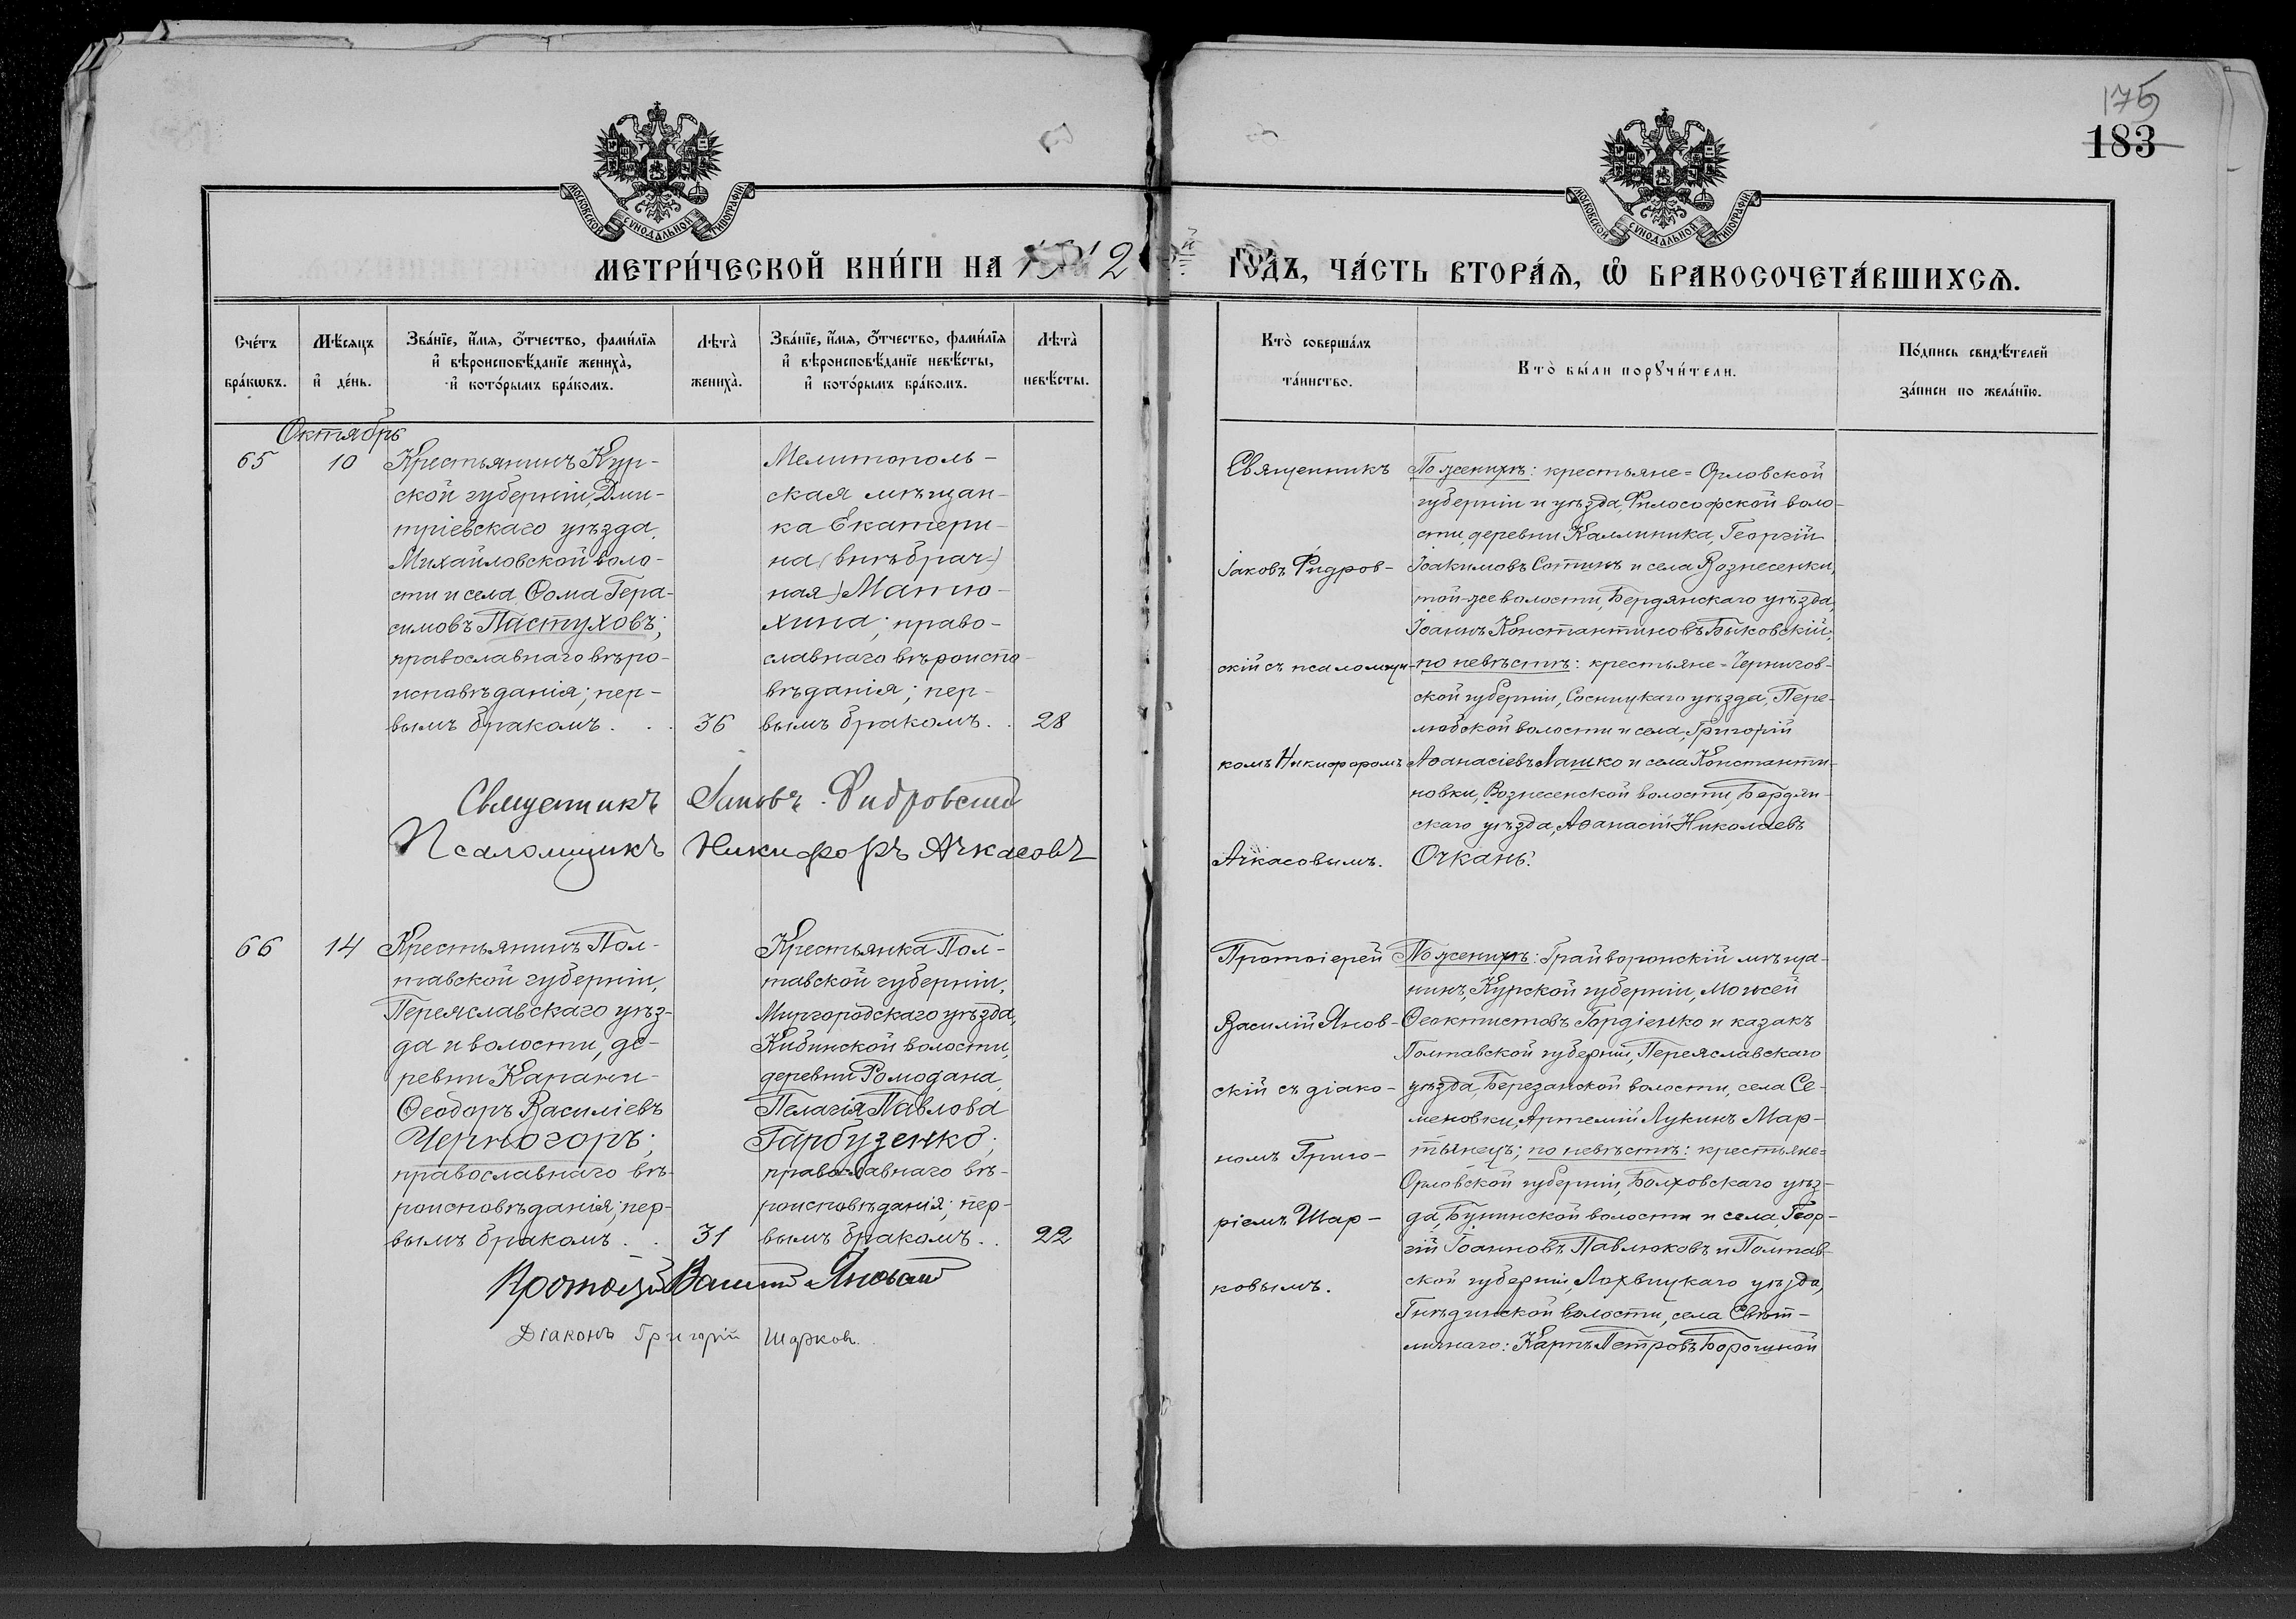 175
183
МОСКОВСКОЙ СУНОДАЛЬНОЙ ТИПОГРАФІИ
МОСКОВСКОЙ СУНОДАЛЬНОЙ ТИПОГРАФІИ
МЕТРИ́ЧЕСКОЙ КНИ́ГИ НА 1912й ГО́ДЪ, ЧА́СТЬ ВТОРА́Ѧ, Ѽ БРАКОСОЧЕТА́ВШИХСѦ.
Сче́тъ бра́кѡвъ.
Мѣ́сяцъ и҆ де́нь.
Зва́нїе, и҆́мѧ, ѻ҆́тчество, фами́лїѧ и҆ вѣроисповѣ́данїе жениха̀, и҆ кото́рымъ бра́комъ.
Лѣта̀ жениха̀.
Зва́нїе, и҆́мѧ, ѻ҆́тчество, фами́лїѧ и҆ вѣроисповѣ́данїе невѣ́сты, и҆ кото́рымъ бра́комъ.
Лѣта̀ невѣ́сты.
Кто̀ соверша́лъ та́инство.
Кто̀ бы́ли порꙋчи́тели.
По́дпись свидѣ́телей за́писи по жела́нїю.
Октябрь
65
10
Крестьянинъ Кур-
ской губерніи, Дми-
тріевскаго уѣзда,
Михайловской воло-
сти и села, Ѳома Гера-
симовъ Пастуховъ;
православнаго вѣро-
исповѣданія; пер-
вымъ бракомъ . . .
36
Мелитополь-
ская мѣщан-
ка Екатери-
на (внѣбрач-
ная) Матю-
хина; право-
славнаго вѣроиспо-
вѣданія; пер-
вымъ бракомъ . .
28
Священникъ
Іаковъ Фидров-
скій съ псаломщи-
комъ Никифоромъ
Ачкасовымъ.
По женихѣ: крестьяне = Орловской
губерніи и уѣзда, Философской воло-
сти, деревни Каллиника, Георгій
Іоакимовъ Сотинъ и села Вознесенки,
той-же волости, Бердянскаго уѣзда,
Іоаннъ Константиновъ Быковскій;
по невѣстѣ: крестьяне = Чернигов-
ской губерніи, Сосницкаго уѣзда, Пере-
любской волости и села, Григорій
Аѳанасіевъ Лашко и села Константи-
новки, Вознесенской волости, Бердян-
скаго уѣзда, Аѳанасій Николаевъ
Очкань.
Священникъ Іаковъ Фидровскій
Псаломщикъ Никифоръ Ачкасовъ
66
14
Крестьянинъ Пол-
тавской губерніи,
Переяславскаго уѣз-
да и волости, де-
ревни Карани-
Ѳеодоръ Василіевъ
Черногоръ;
православнаго вѣ-
роисповѣданія; пер-
вымъ бракомъ . .
31
Крестьянка Пол-
тавской губерніи,
Миргородскаго уѣзда,
Кибинской волости,
деревни Ромодана,
Пелагія Павлова
Гарбузенко;
православнаго вѣ-
роисповѣданія; пер-
вымъ бракомъ . .
22
Протоіерей
Василій Янов-
скій съ діако-
номъ Григо-
ріемъ Шар-
ковымъ.
По женихѣ: Грайворонскій мѣща-
нинъ, Курской губерніи, Моѵсей
Ѳеоктистовъ Гордіенко и казакъ
Полтавской губерніи, Переяславскаго
уѣзда, Березанской волости, села Се-
меновки, Артемій Лукинъ Мар-
тынецъ; по невѣстѣ: крестьяне =
Орловской губерніи, Болховскаго уѣз-
да, Бунинской волости и села, Геор-
гій Іоанновъ Павлюковъ и Полтав-
ской губерніи, Лохвицкаго уѣзда,
Гнѣдинской волости, села Свѣт-
личнаго: Карпъ Петровъ Борошной
Протоіерей Василій Яновскій
Діаконъ Григорій Шарковъ.